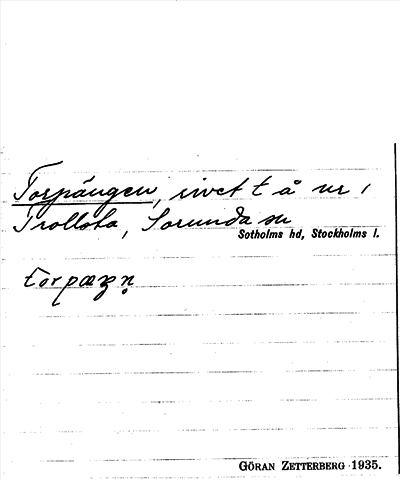 Torpängen, t å nr 1
Trollsta, Sorunda sn
Sotholms hd, Stockholms l.
GÖRAN ZETTERBERG 1935.